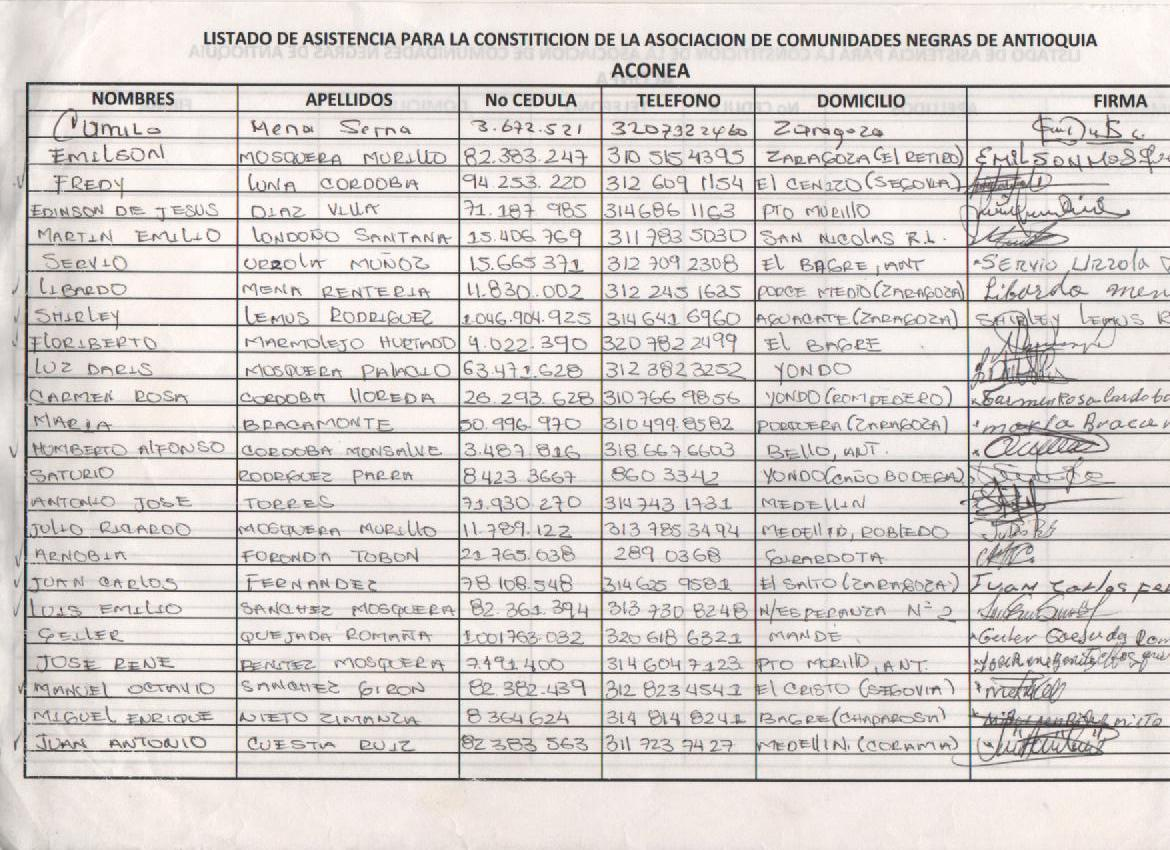 LISTADO DE ASISTENCIA PARA LA CONSTITICION DE LA ASOCIACION DE COMUNIDADES NEGRAS DE ANTIOQUIA
ACONEA
NOMBRES APELLIDOS No CEDULA TELEFONO DOMICILIO FIRMA
Camilo Mena Serna 3.672.521 3207322460 Zaragoza
EMILSON MOSQUERA MURILLO 82.383.247 310 515 4395 ZARAGOZA (El RETIRO) EMILSON MOSQUE
FREDY LUNA CORDOBA 94.253.220 312 609 1154 El CENIZO (SEGOVIA)
EDINSON DE JESUS DIAZ VILLA 71.187 985 314686 1163 PTO MURILLO
MARTIN EMILIO LONDOÑO SANTANA 15.406.769 311 783 5030 SAN NICOLAS R.L.
SERVIO URZOLA MUÑOZ 15.665 371 312 709 2308 EL BAGRE, ANT SERVIO URZOLA
LIBARDO MENA RENTERIA 11.830.002 312 245 1625 PORCE MEDIO (ZARAGOZA) Libardo men
SHIRLEY LEMUS RODRIGUEZ 1046.904.925 314641 6960 AGUACATE (ZARAGOZA) SHIRLEY LEMUS R
FLORIBERTO MARMOLEJO HURTADO 4.022.390 320 782 2499 EL BAGRE
LUZ DARIS MOSQUERA PALACIO 63.471.628 312 382 3252 YONDO
CARMEN ROSA CORDOBA LLOREDA 26.293.628 310 766 9856 YONDO (ROMPEDERO) Carmen Rosa Cordoba
MARIA BRACAMONTE 50.996.970 310499.8582 PORQUERA (ZARAGOZA) maria Bracam
HUMBERTO ALFONSO CORDOBA MONSALVE 3.487.816 318.667 6603 BELLO, ANT.
SATURIO RODRIGUEZ PARRA 8 423 3667 860 3342 YONDO (CAÑO BODEGA)
ANTONIO JOSE TORRES 71.930.270 314 743 1731 MEDELLIN
JULIO RICARDO MOSQUERA MURILLO 11.789.122 313 785 3494 MEDELLIN, ROBLEDO
ARNOBIA FORONDA TOBON 21.765.038 289 0368 GIRARDOTA
JUAN CARLOS FERNANDEZ 78 108.548 314 625 9581 El SALTO (ZARAGOZA) Juan Carlos Fe
LUIS EMILIO SANCHEZ MOSQUERA 82.361.394 313 730 8248 N/ESPERANZA Nº 2
GELLER QUEJADA ROMAÑA 1001763.032 320 618 6321 MANDE
JOSE RENE BENITEZ MOSQUERA 7.491.400 314 604 7123 PTO MURILLO, ANT.
MANUEL OCTAVIO SANCHEZ GIRON 82.382.439 312 823 4541 El CRISTO (SEGOVIA)
MIGUEL ENRIQUE NIETO ZIMANZA 8 364 624 314 814 8241 BAGRE (CHAPAROSA)
JUAN ANTONIO CUESTIA RUIZ 82 383 563 311 723 7427 MEDELLIN. (CORAMA)